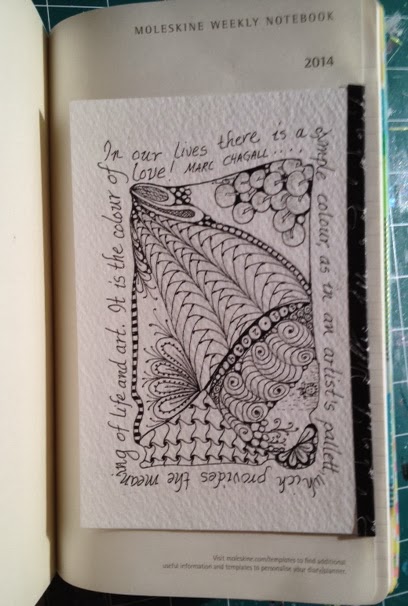 MOLESKINE WEEKLY NOTEBOOK
2014
In our lives there is a
simple colour, as in an artist's palett
which provides the mean
ing of life and art. It is the colour of
love! MARC CHAGALL....
Visit moleskine.com/templates to find additional
useful information and templates to personalise your diary/planner.